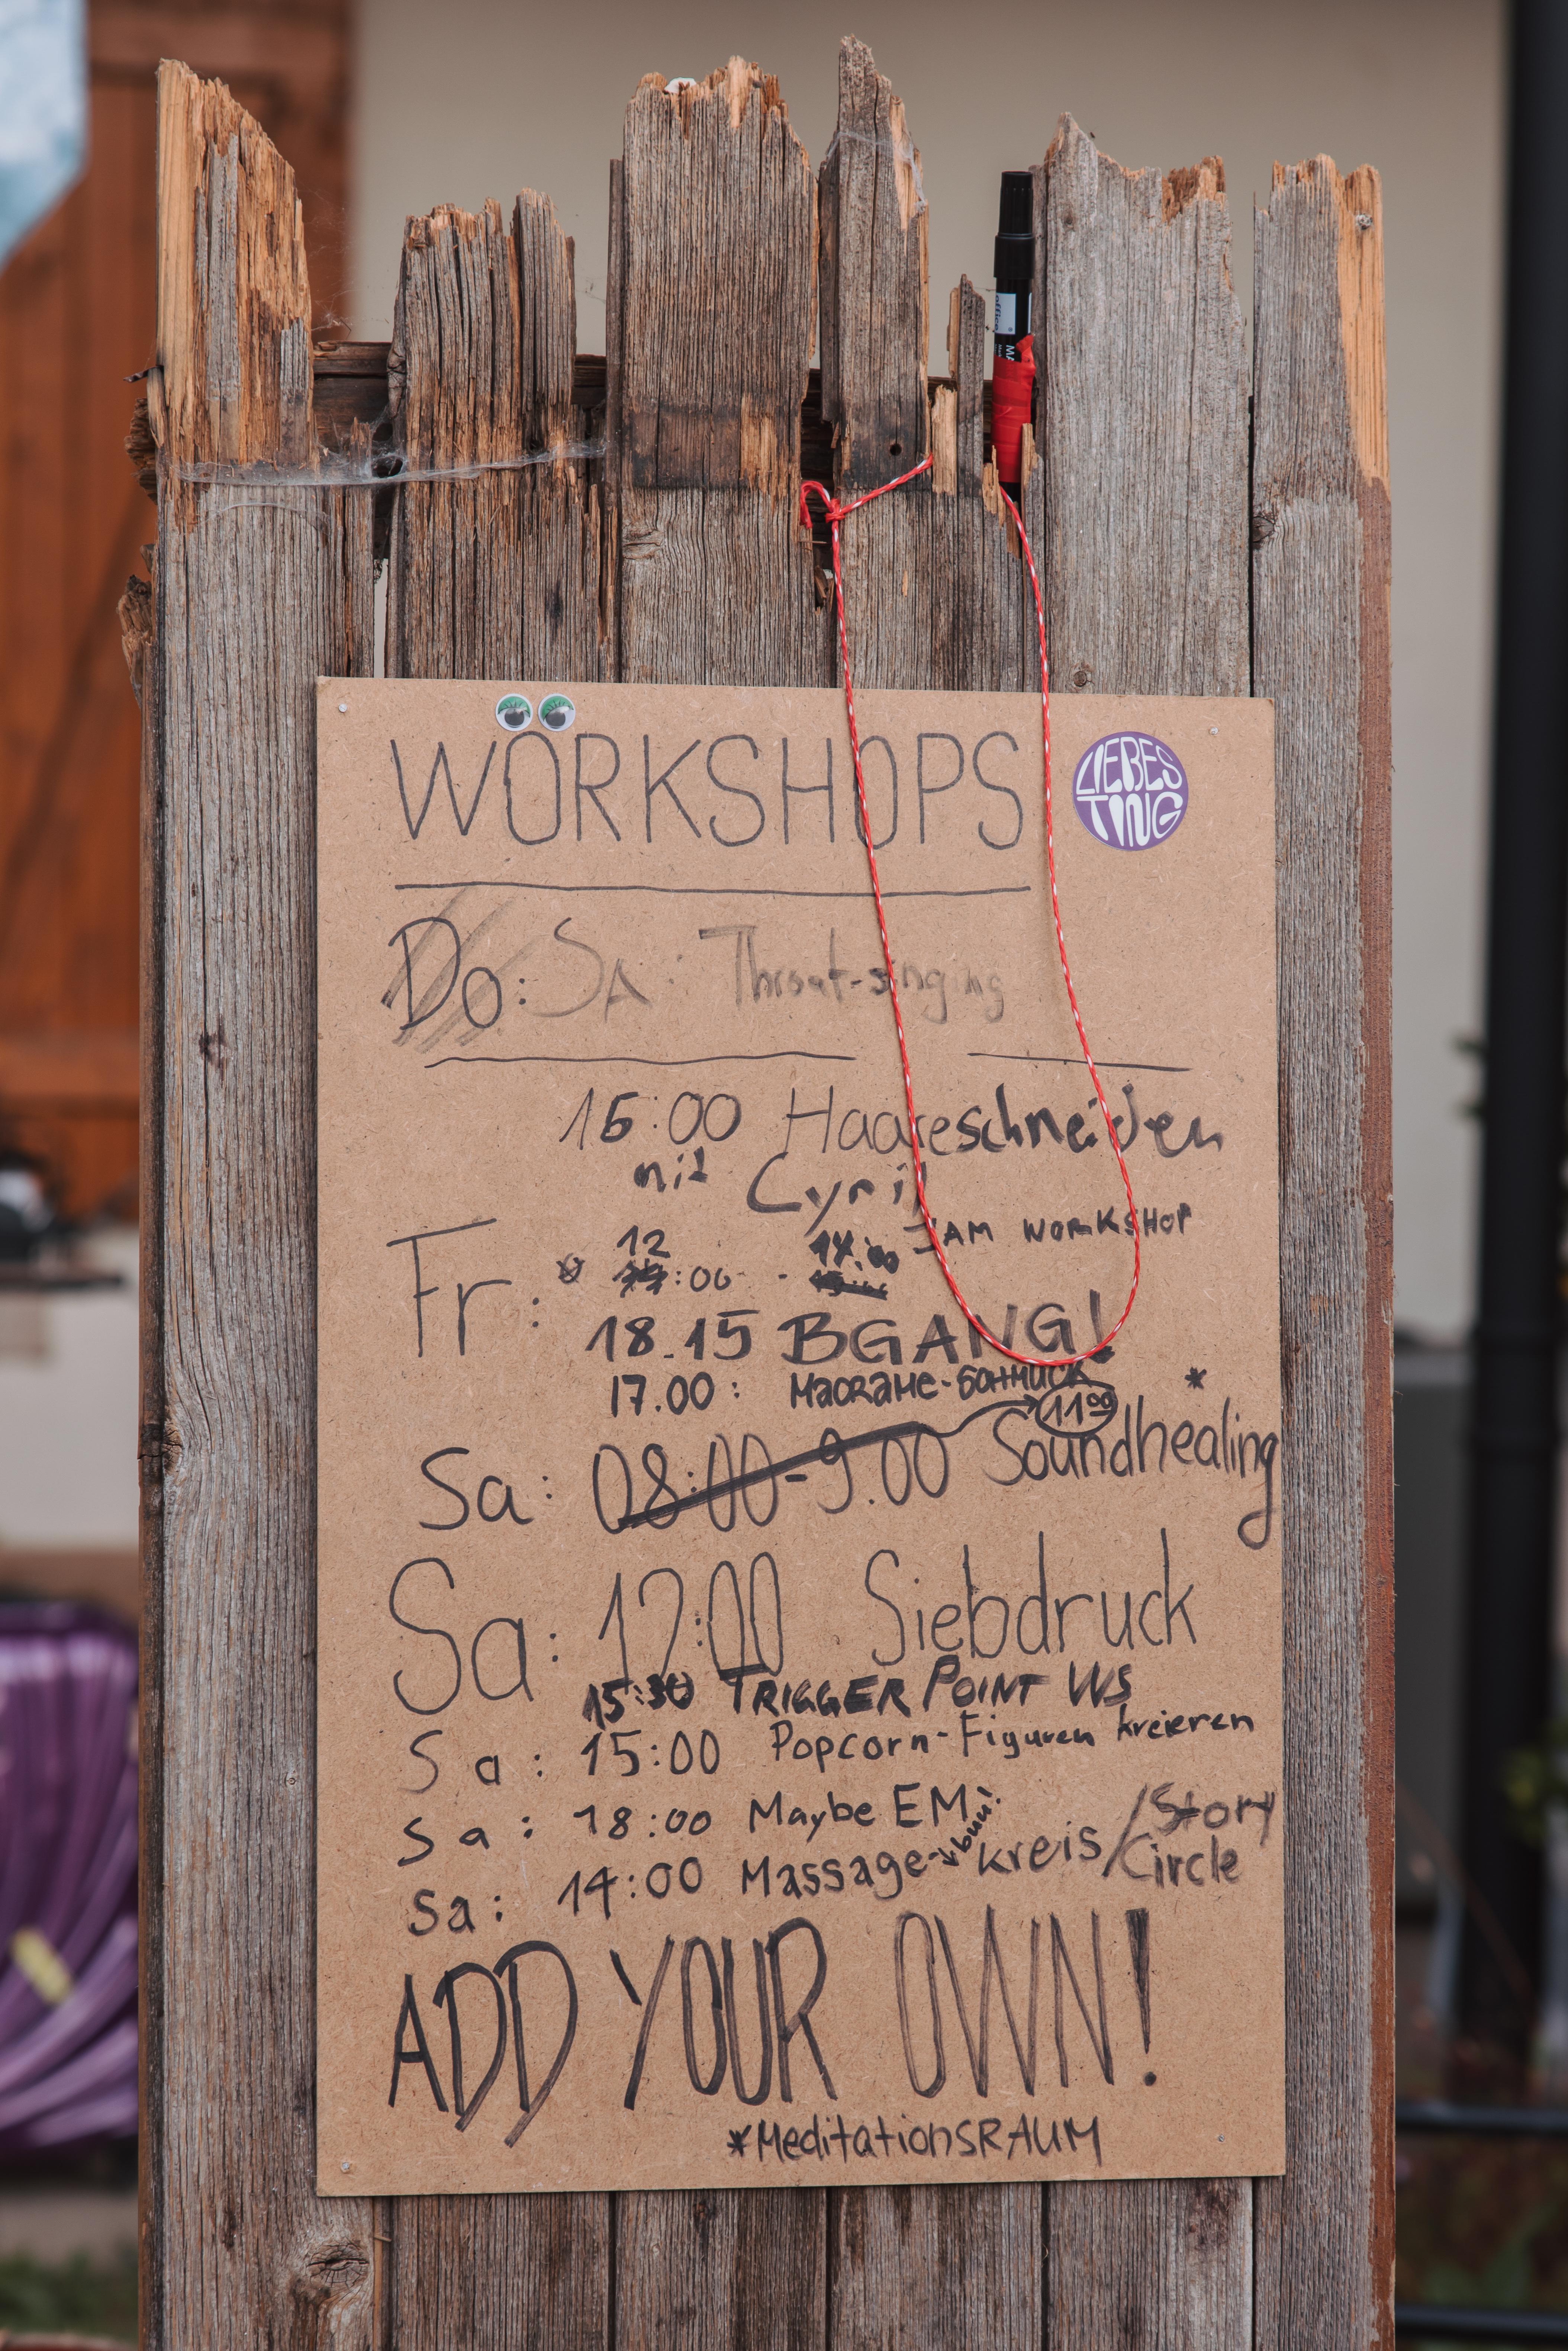 office
MA
WÖRKSHOPS
LIEBES
TING
Do: SA: Throat-singing
16:00 Haareschneiden
mit Cyril
Fr: 12:00 - 14.00 JAM WORKSHOP
18.15 BGANG!
17.00: MACRAME-SCHMUCK
Sa: 08:00-9.00 11⁰⁰ Soundhealing*
Sa: 12:00 Siebdruck
15:30 TRIGGER POINT WS
Sa: 15:00 Popcorn-Figuren kreieren
Sa: 18:00 Maybe EM
Sa: 14:00 Massage-kreis/Story Circle
ADD YOUR OWN!
*MeditationsRAUM